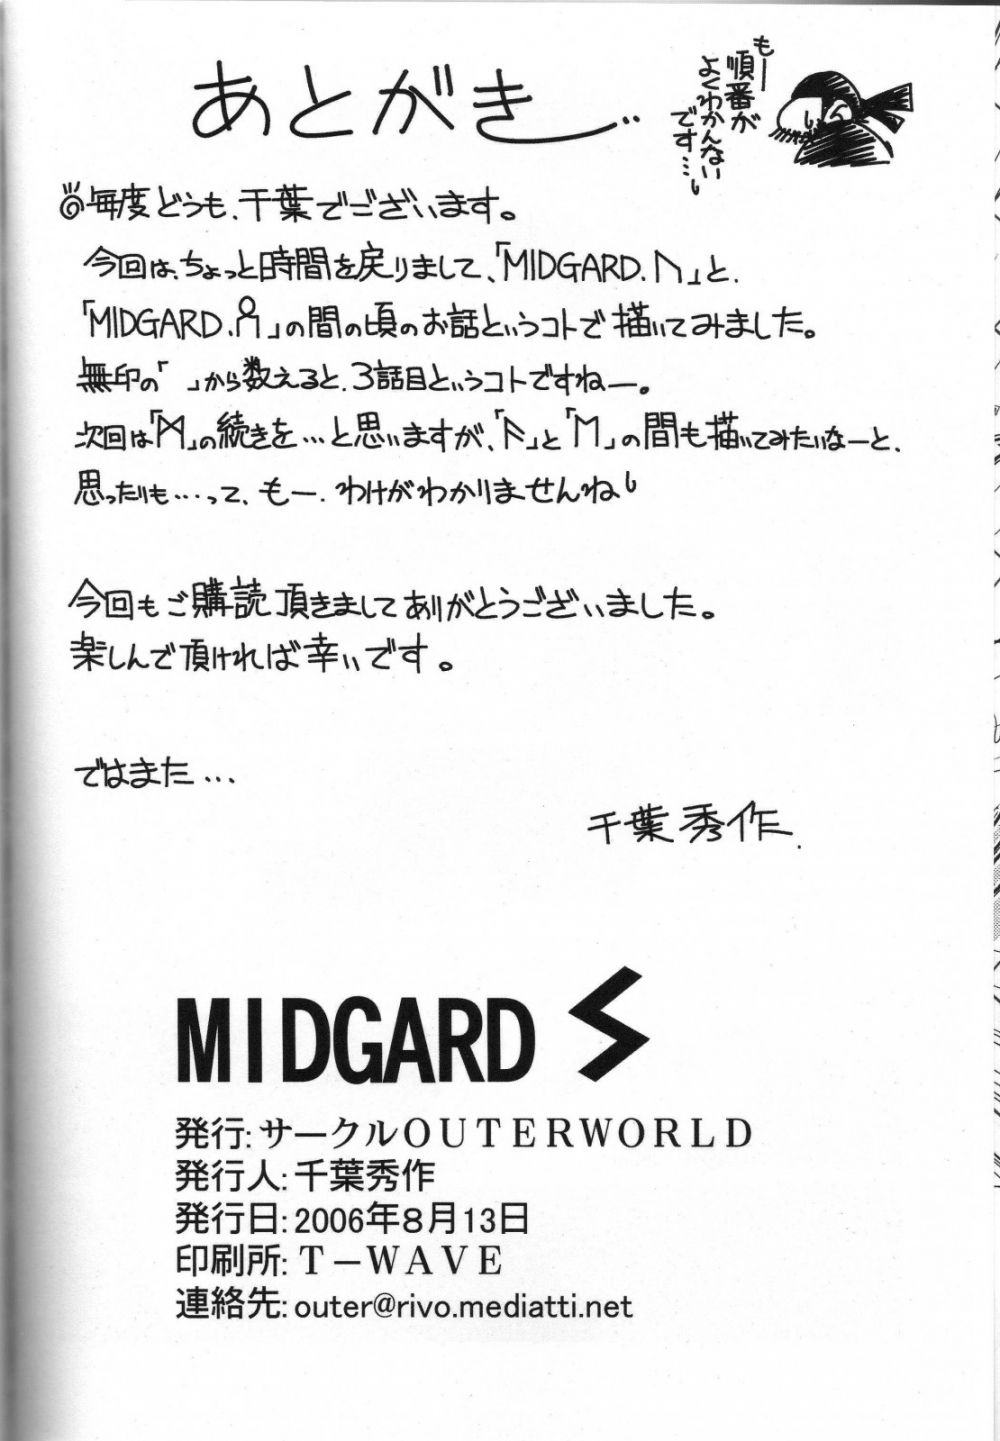 あとがき...
もー
順番が
よくわかんない
です…
毎度どうも、千葉でございます。
今回は、ちょっと時間を戻りまして、「MIDGARD.ᚢ」と、
「MIDGARD.ᛟ」の間の頃のお話というコトで描いてみました。
無印の「　」から数えると、3話目というコトですねー。
次回は「ᛞ」の続きを…と思いますが、「ᚨ」と「ᛖ」の間も描いてみたいなーと、
思ったりも…って、もー、わけがわかりませんね
今回もご購読頂きましてありがとうございました。
楽しんで頂ければ幸いです。
ではまた…
千葉秀作.
MIDGARD ᛊ
発行:サークルOUTERWORLD
発行人:千葉秀作
発行日:2006年8月13日
印刷所:T－WAVE
連絡先:outer@rivo.mediatti.net